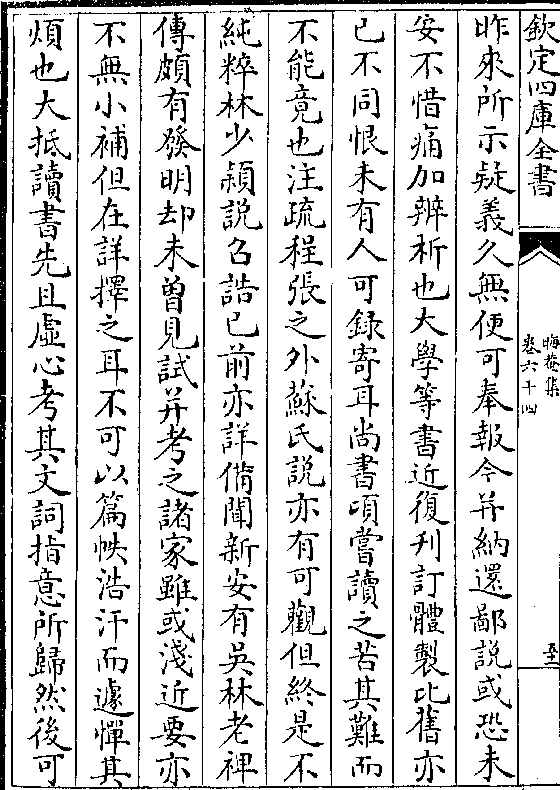 欽定四庫全書
晦菴集
卷六十四
昨來所示疑義久無便可奉報今并納還鄙說或恐未
安不惜痛加辨析也大學等書近復刋訂體製比舊亦
已不同恨未有人可録寄耳尚書項嘗讀之苦其難而
不能竟也注疏程張之外蘇氏說亦有可觀但終是不
純粹林少頴說召誥已前亦詳備聞新安有吳林老禆
傳頗有發明却未曾見試并考之諸家雖或淺近要亦
不無小補但在詳擇之耳不可以篇帙浩汗而遽憚其
煩也大抵讀書先且虛心考其文詞指意所歸然後可